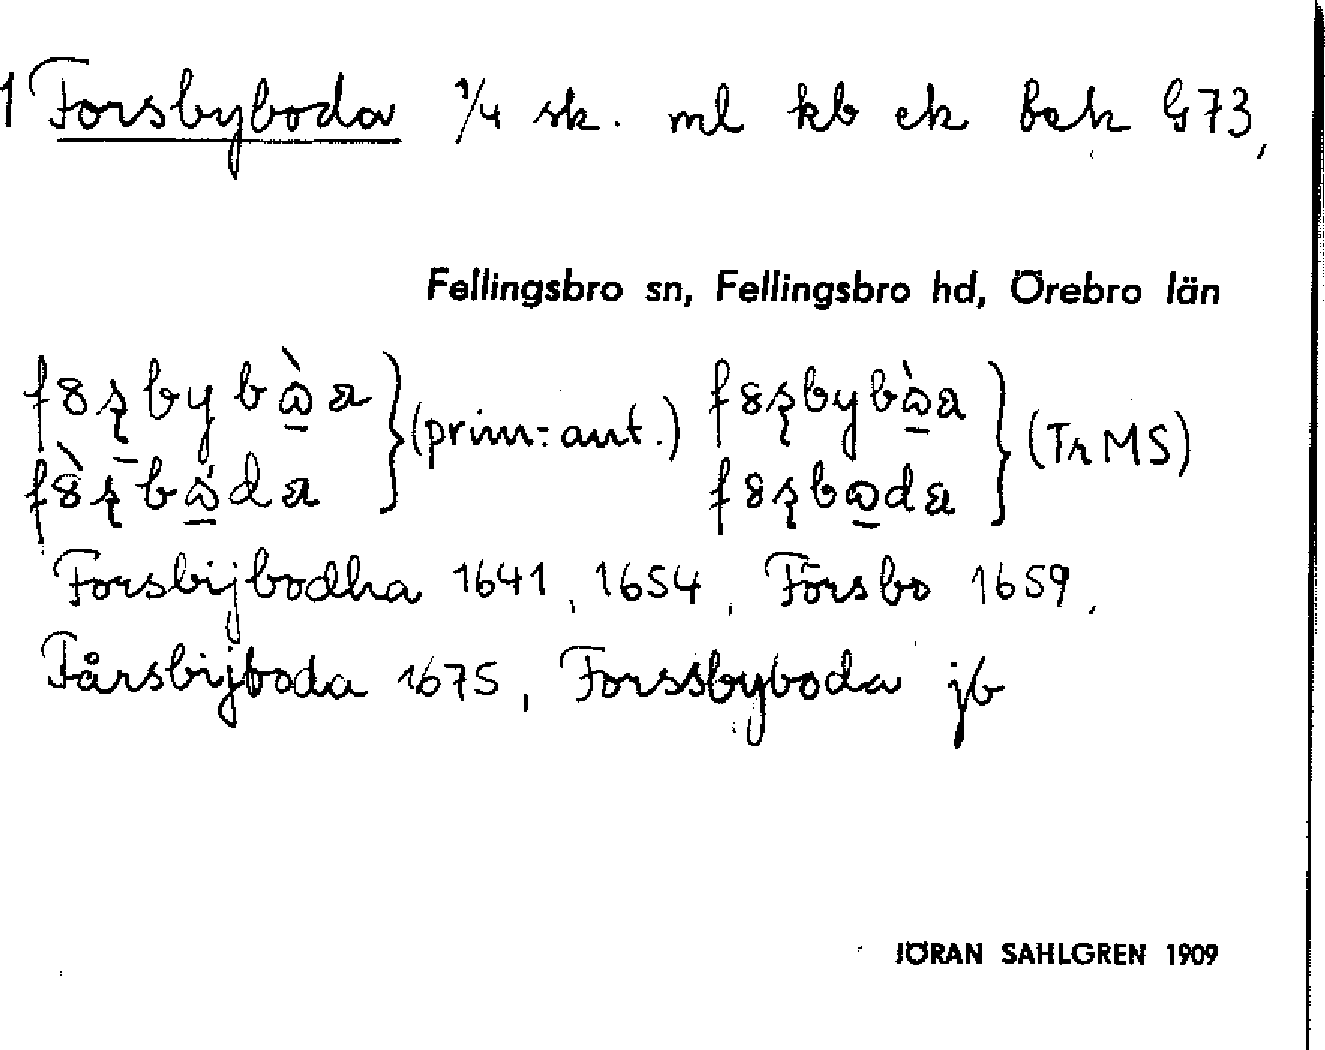 1 Forsbyboda 1/4 sk. ml kb ek bek G73,
Fellingsbro sn, Fellingsbro hd, Örebro län
(prim. ant.) (Tr MS)
Forsbijbodha 1641, 1654, Forsbo 1659,
Fårsbijboda 1675, Forssbyboda jb
JÖRAN SAHLGREN 1909